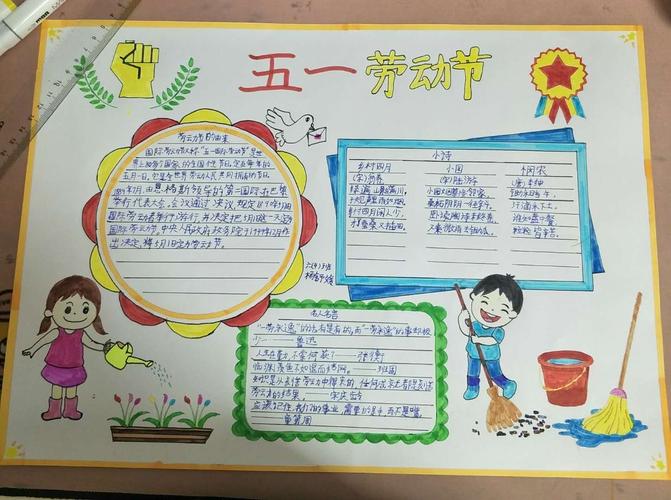 五一劳动节
劳动节的由来
国际劳动节又称"五一国际劳动节"是世
界上80多个国家的全国性节日,定在每年的
五月一日,它是全世界劳动人民共同拥有的节日。
1889年7月,由恩格斯领导的第二国际在巴黎
举行代表大会。会议通过决议,规定1890年5月1日
国际劳动者举行游行,并决定把5月1日这一天定为
国际劳动节。中央人民政府政务院于1949年12月作
出决定,将5月1日定为劳动节。
小诗
乡村四月
(宋)翁卷
绿遍山原白满川,
子规声里雨如烟。
乡村四月闲人少,
才了蚕桑又插田。
小园
(宋)陆游
小园烟草接邻家,
桑柘阴阴一径斜。
卧读陶诗未终卷,
又乘微雨去锄瓜。
悯农
(唐)李绅
锄禾日当午,
汗滴禾下土。
谁知盘中餐,
粒粒皆辛苦。
名人名言
"一劳永逸"的话有是有的,而"一劳永逸"的事却极
少——鲁迅
人生在勤,不索何获?——张衡
临渊羡鱼不如退而结网。——班固